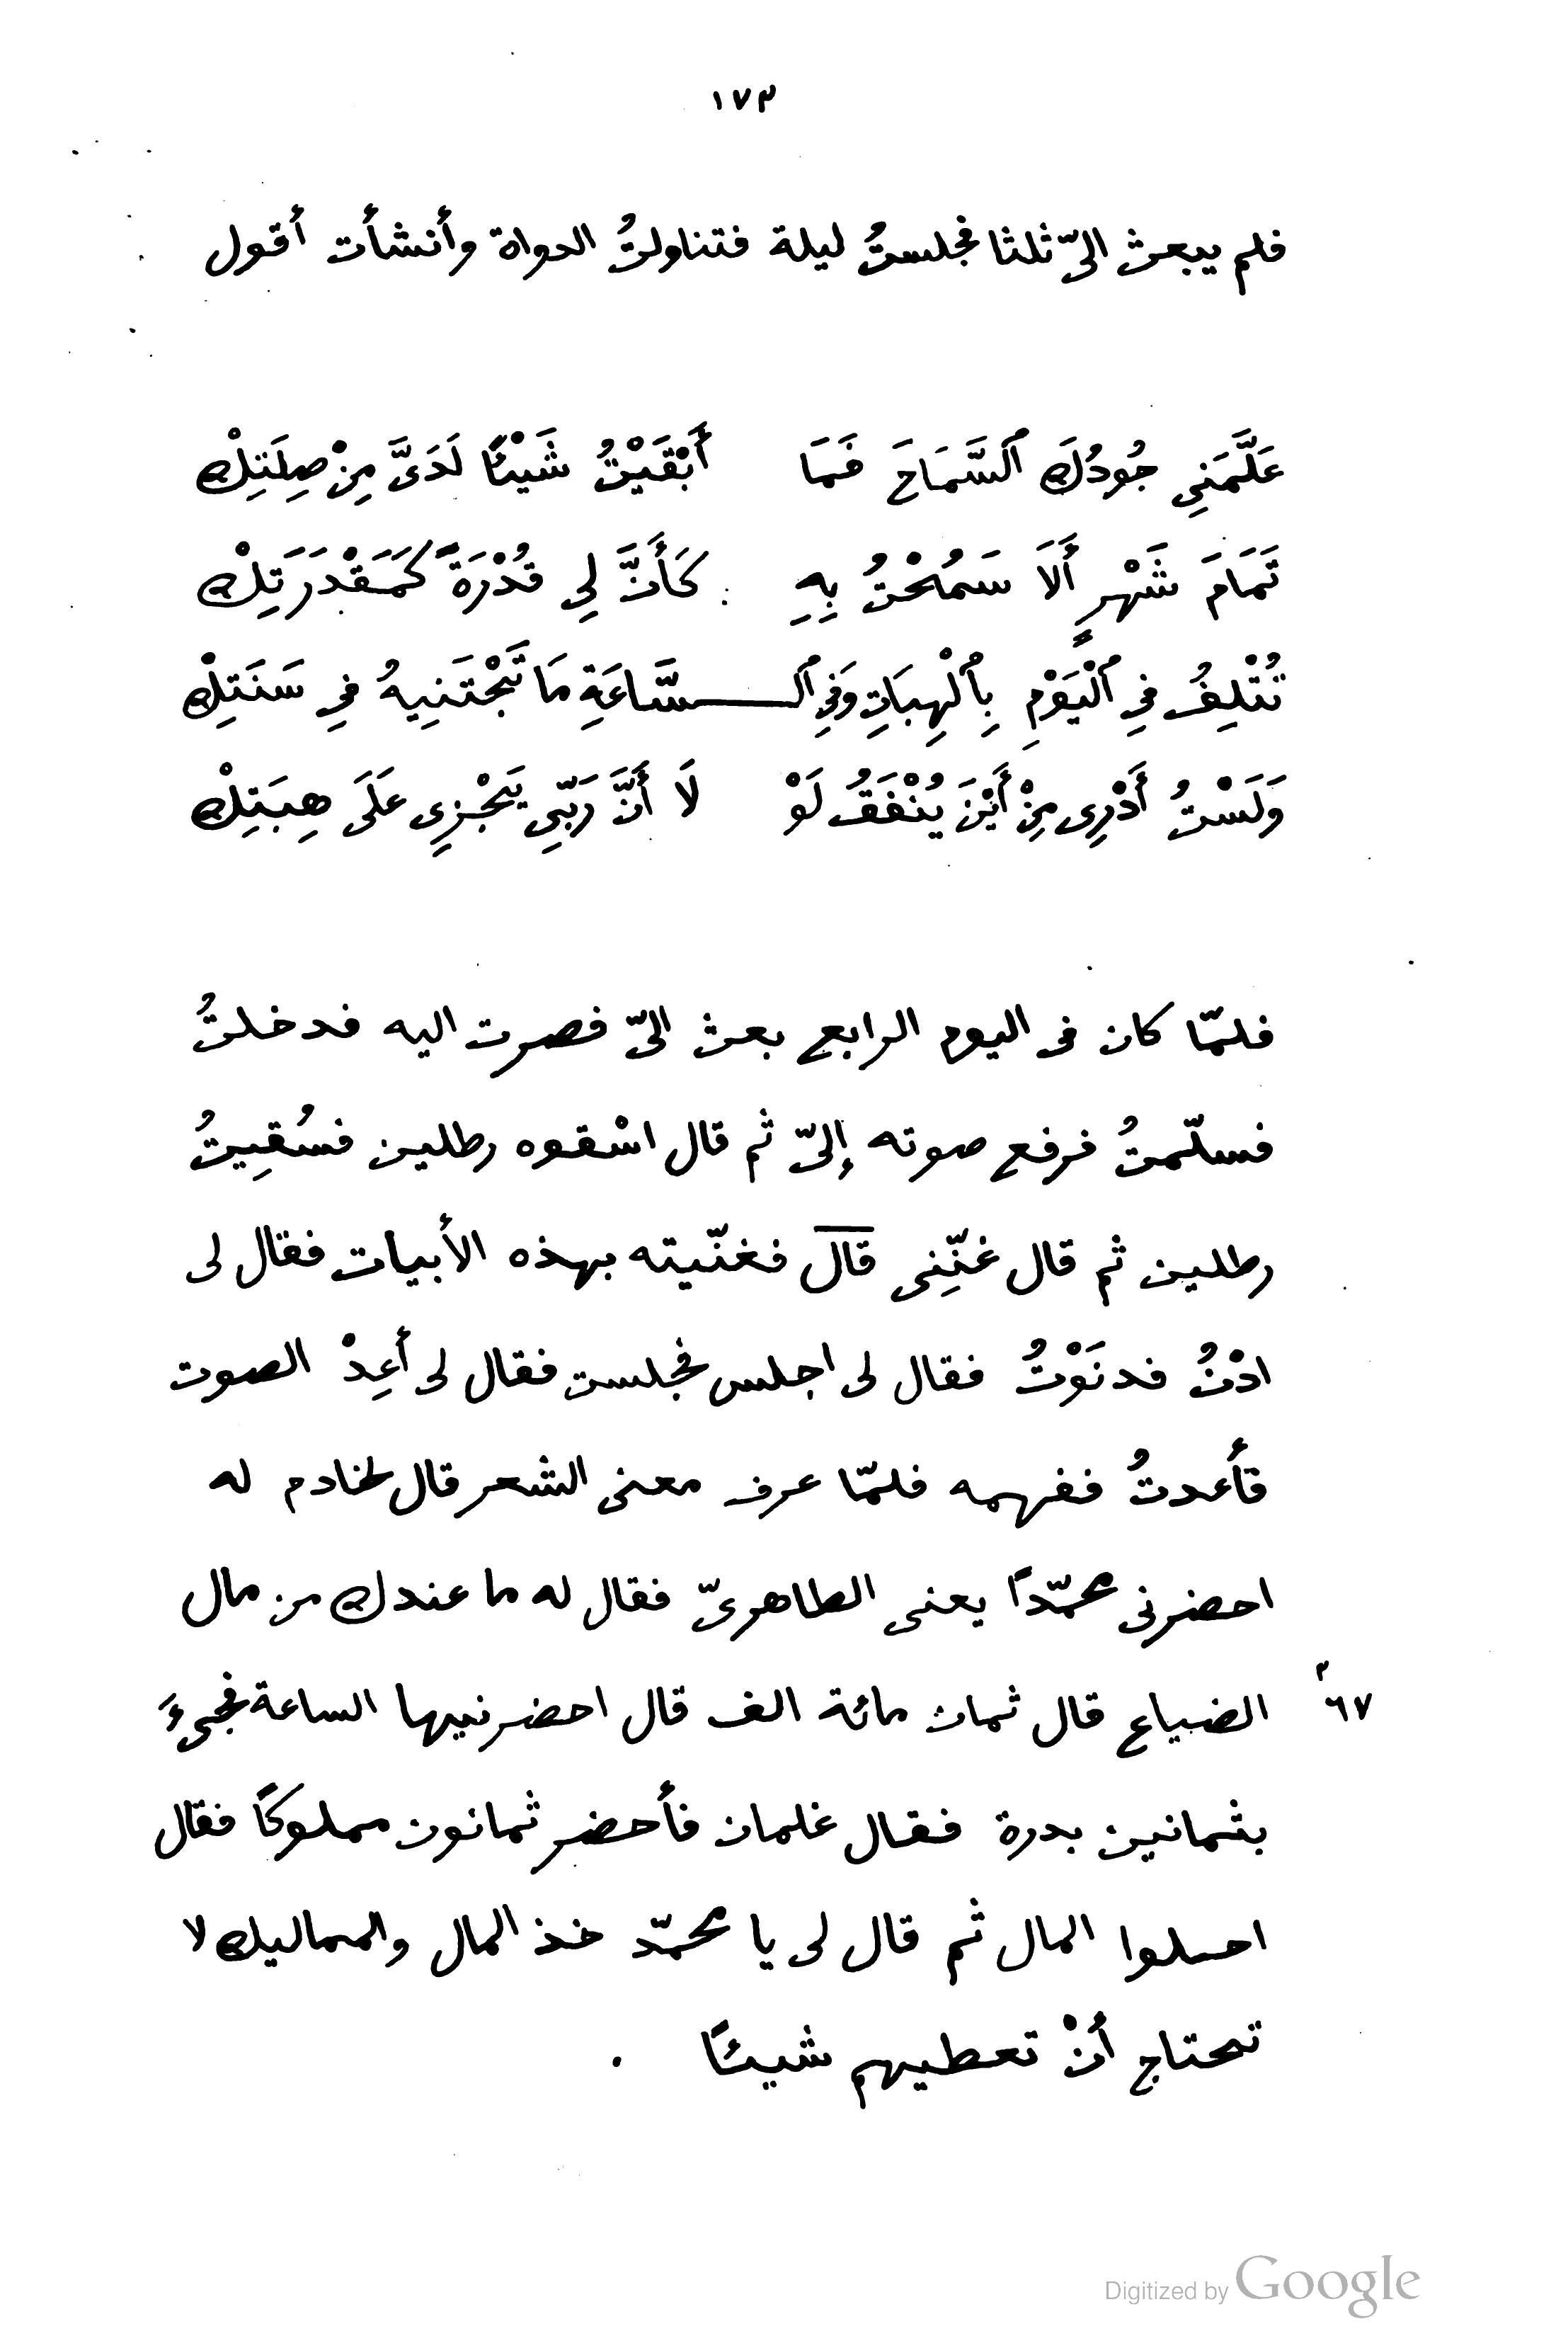 ١٧٣
فلم يبعث الىّ ثلثا فجلستُ ليلة فتناولتُ الدواة وأنشأت أقول
عَلَّمَنِي جُودُكَ ٱلسَّمَاحَ فَمَا أَبْقَيْتُ شَيْئًا لَدَىَّ مِنْ صِلَتِكْ
تَمَامَ شَهْرٍ أَلَا سَمُحْتُ بِهِ كَأَنَّ لِي قُدْرَةً كَمَقْدَرَتِكْ
تُتْلِفُ فِي ٱلْيَوْمِ بِٱلْهِبَاتِ وَفِي ٱلسَّاعَةِ مَا تَجْتَنِيهُ فِي سَنَتِكْ
وَلَسْتُ أَدْرِى مِنْ أَيْنَ يُنْفَقُ لَوْ لَا أَنَّ رَبِّي يَجْزِى عَلَى هِبَتِكْ
فلمّا كان فى اليوم الرابع بعث الىّ فصرت اليه فدخلتُ
فسلّمتُ فرفع صوته إلىّ ثم قال اسْقوه رطلين فسُقِيتُ
رطلين ثم قال غنِّنى قال فغنّيته بهذه الأبيات فقال لى
ادْنُ فدنَوْتُ فقال لى اجلس فجلست فقال لى أَعِدْ الصوت
فأعدتُ ففهمه فلمّا عرف معنى الشعر قال لخادم له
احضرنى محمّدًا يعنى الطاهرىّ فقال له ما عندك من مال
الضياع قال ثمان مائة الف قال احضرنيها الساعة فجىءَ
٦٧
بثمانين بدرة فقال غلمان فأحضر ثمانون مملوكًا فقال
احملوا المال ثم قال لى يا محمّد خذ المال والمماليك لا
تحتاج أنْ تعطيهم شيئًا .
Digitized by Google